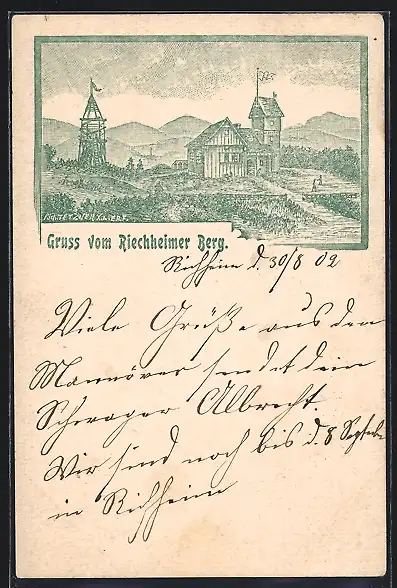 Gruss vom Riechheimer Berg.
Richheim d. 30/8 02
Viele Grüße aus dem
Mannöver sendet dein
Schwager Albrecht.
Wir sind noch bis d. 8 Septebe
in Richheim